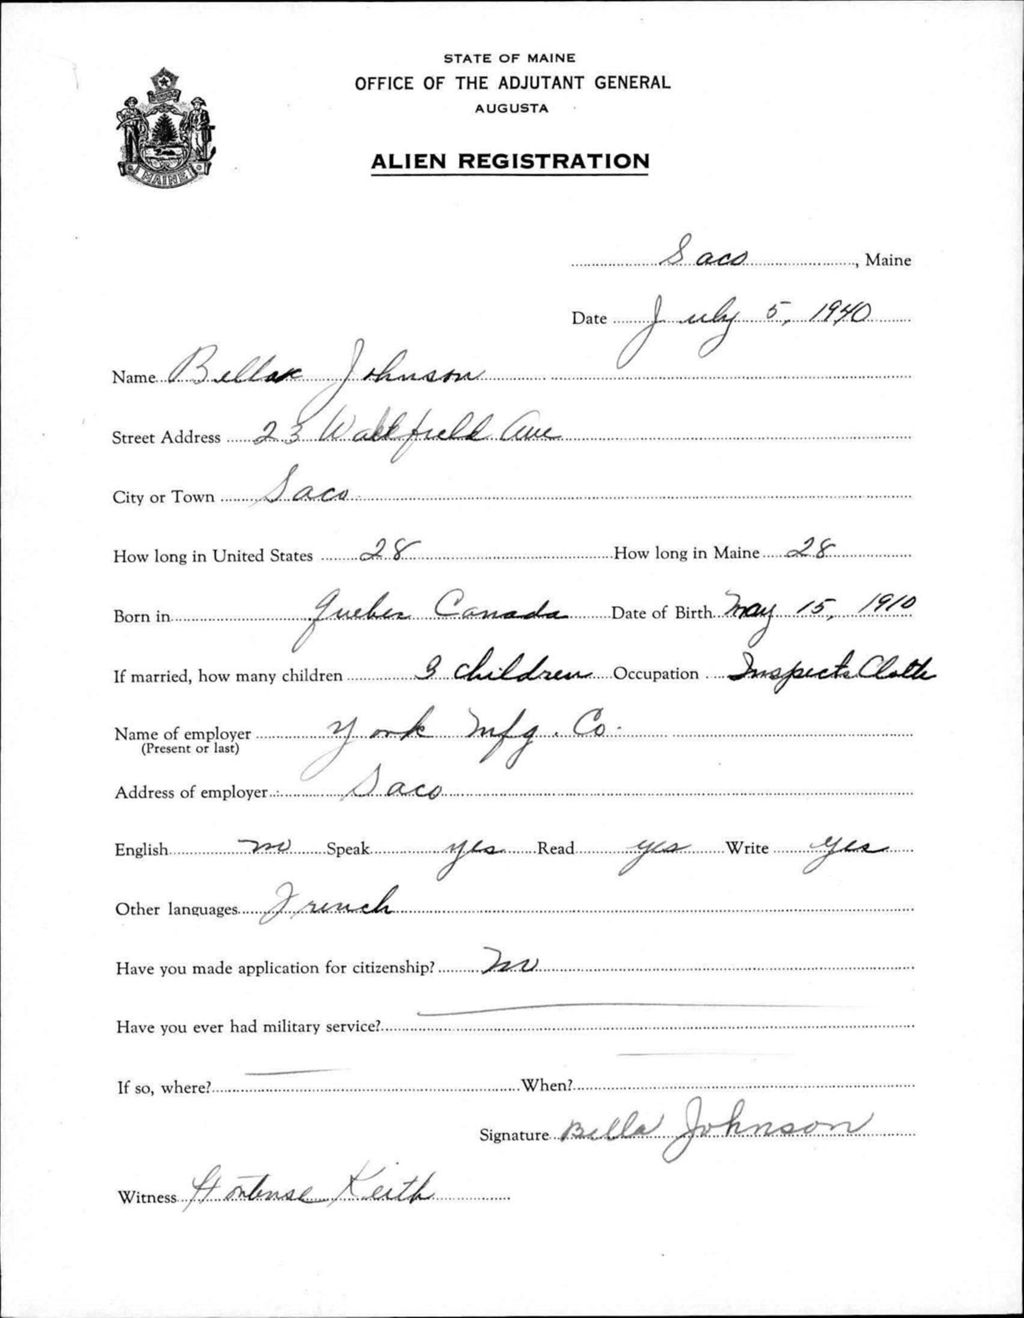 STATE OF MAINE
OFFICE OF THE ADJUTANT GENERAL
AUGUSTA
ALIEN REGISTRATION
MAINE
Saco, Maine
Date July 5, 1940
Name Johnson
Street Address 23 Ave
City or Town Saco
How long in United States 28 How long in Maine 28
Born in Quebec Canada Date of Birth May 15, 1910
If married, how many children 3 children Occupation Inspects Cloth
Name of employer York Mfg. Co.
(Present or last)
Address of employer Saco
English no Speak yes Read yes Write yes
Other languages French
Have you made application for citizenship? no
Have you ever had military service?
If so, where? When?
Signature Bella Johnson
Witness Hortense Keith